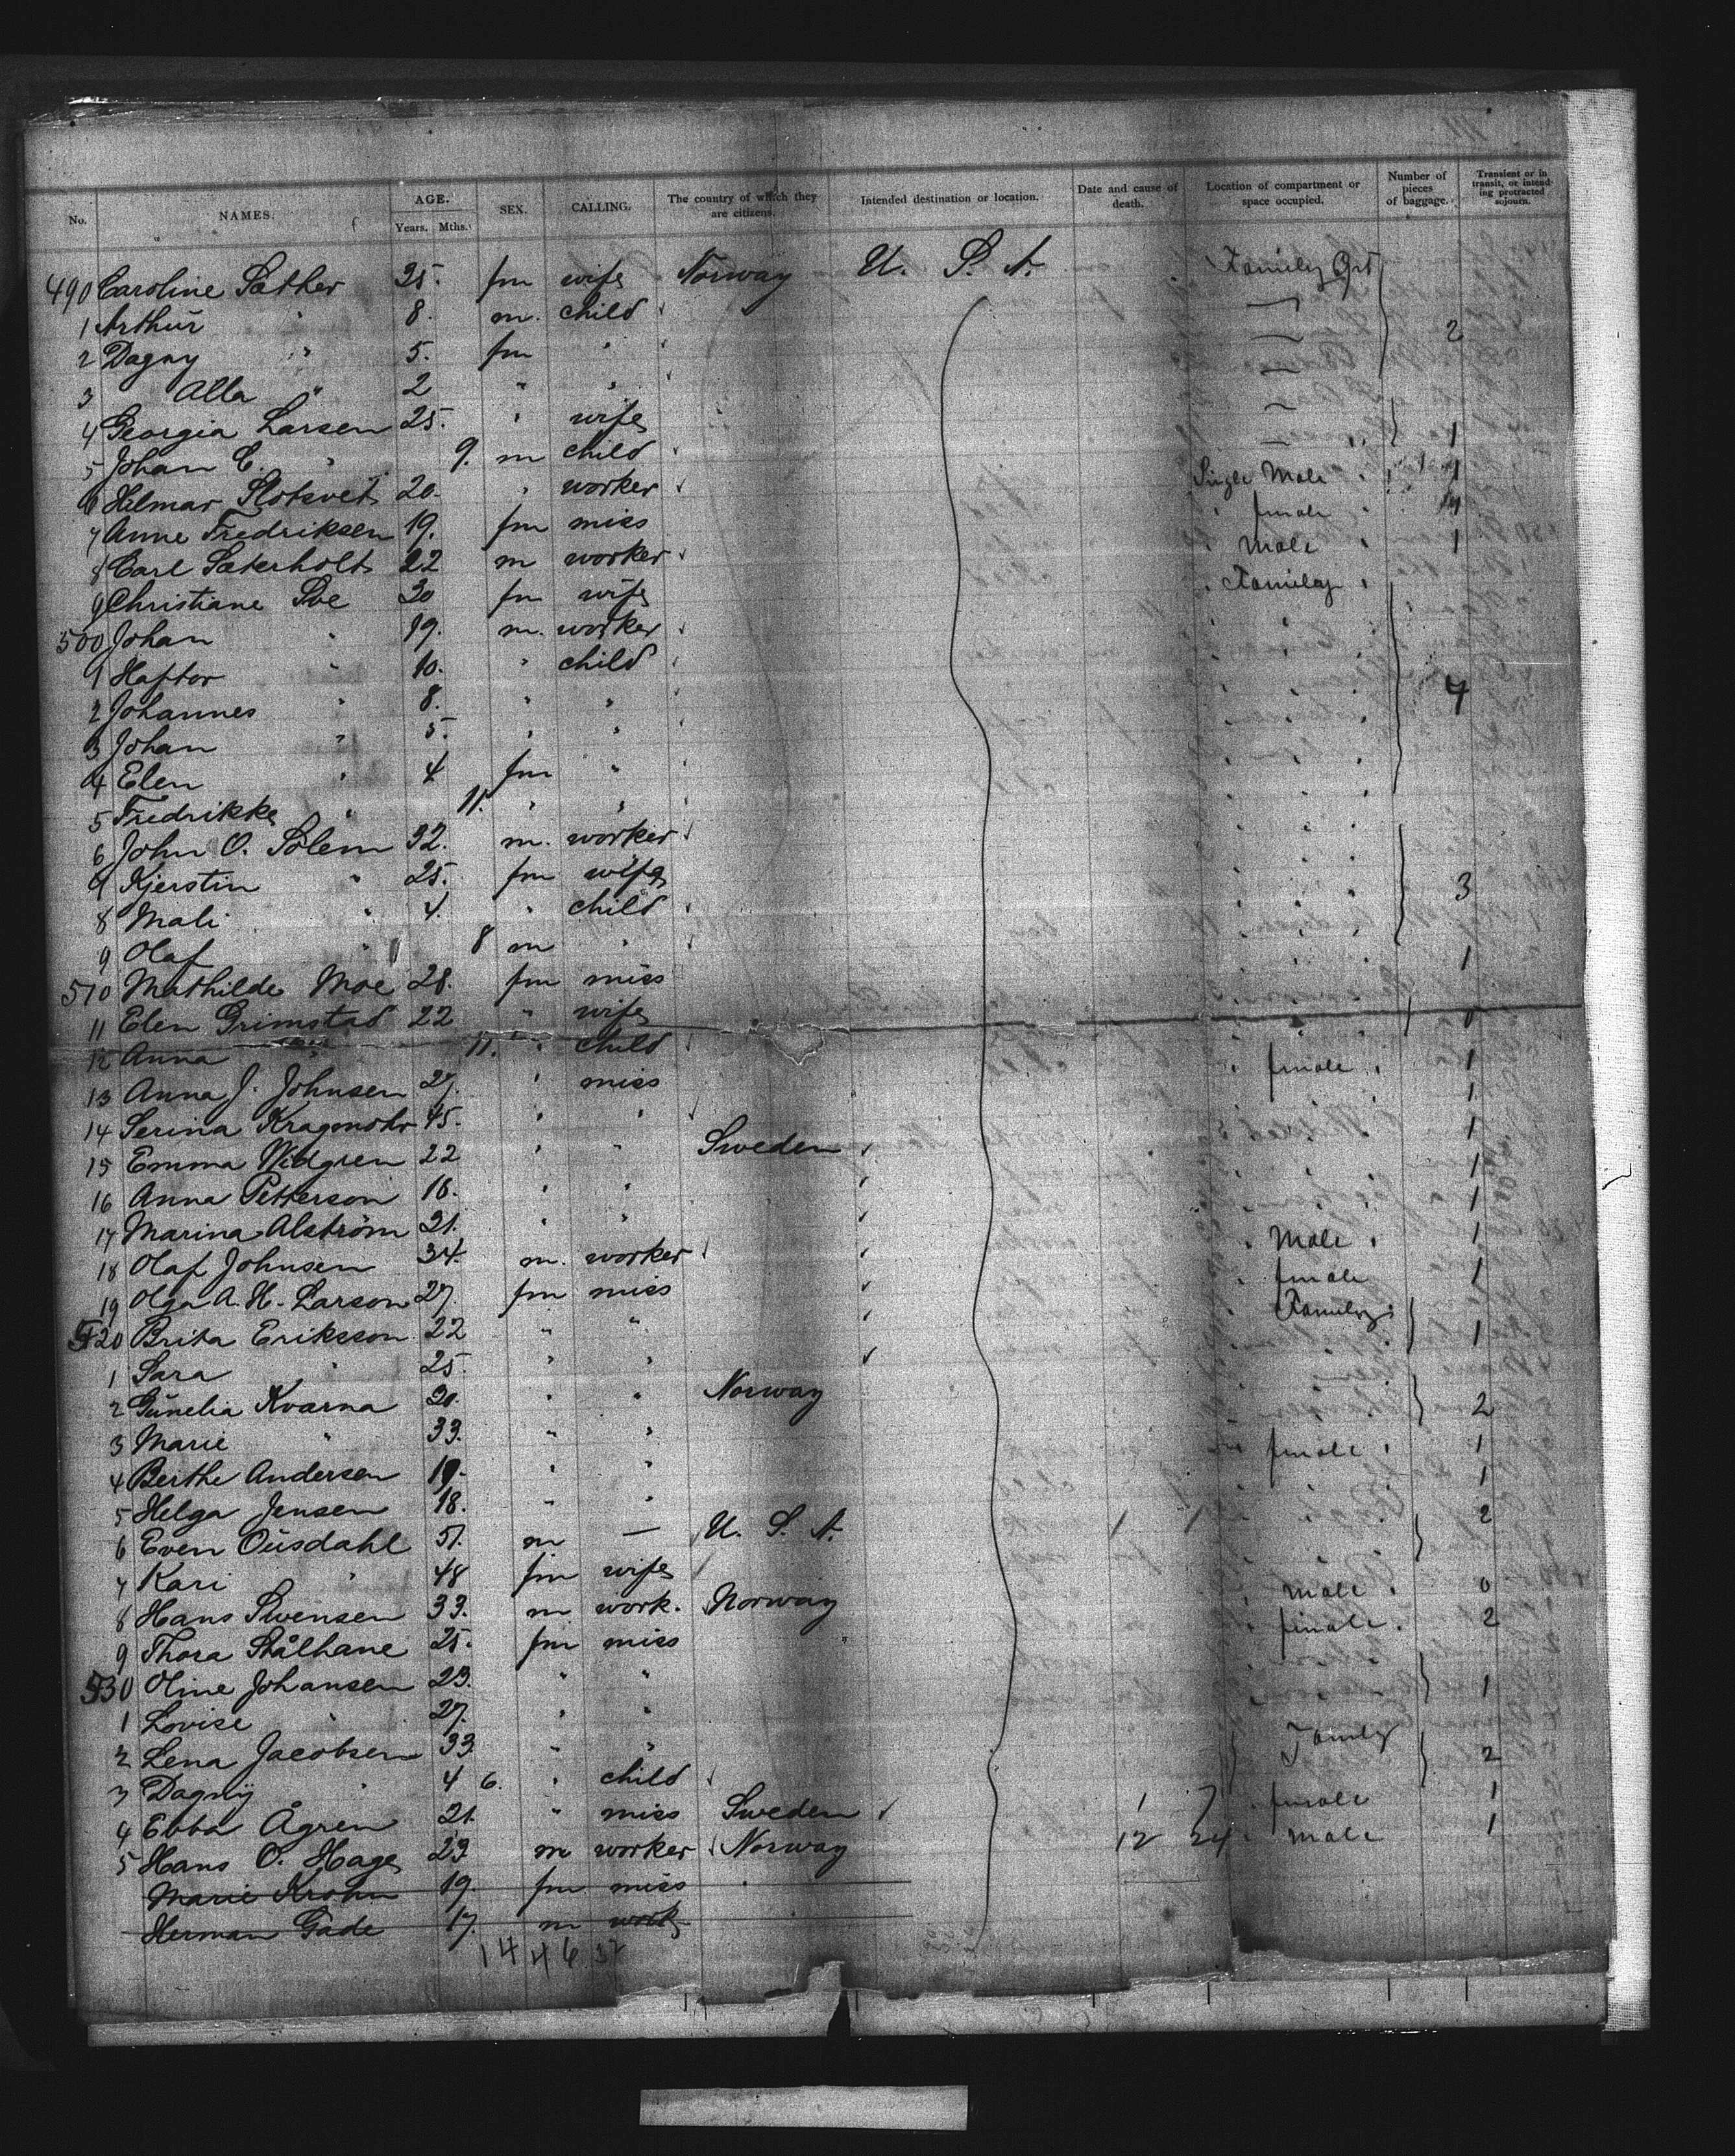 No. NAMES. AGE. Years. Mths. SEX. CALLING. The country of which they are citizens. Intended destination or location. Date and cause of death. Location of compartment or space occupied. Number of pieces of baggage. Transient or in transit, or intending protracted sojourn.
490 Caroline Sæther 35. fm wife Norway U. S. A. Family
1 Arthur " 8. m. child
2 Dagny " 5. fm " 2
3 Alla " 2 " "
4 Georgia Larsen 25. " wife
5 Johan C. " 9. m child 1
6 Hilmar Slotsvet 20. " worker Single Male 1
7 Anne Fredriksen 19. fm miss " female "
8 Carl Sæterholt 22 m worker " Male " 1
9 Christiane Soe 30 fm wife " Family "
500 Johan " 19. m. worker
1 Haftor " 10. " child
2 Johannes " 8. " " 4
3 Johan " 5. " "
4 Elen " 4 fm "
5 Fredrikke " 11. " "
6 John O. Solem 32. m. worker
7 Kjerstin " 25. fm wife 3
8 Mali " 4. " child
9 Olaf " 8 m "
510 Mathilde Moe 28. fm miss 1
11 Elen Grimstad 22 " wife 0
12 Anna " 11. " child
13 Anna J. Johnsen 27. " miss " female " 1
14 Serina Kragmohr 45. " " 1
15 Emma Widgren 22 " " Sweden 1
16 Anna Petterson 16. " " 1
17 Marina Alström 21. " " 1
18 Olaf Johnsen 34. m. worker " Male " 1
19 Olga A. H. Larson 27. fm miss " female 1
520 Brita Eriksson 22 " " Family
1 Sara " 25. " " 1
2 Gunelia Kvarna 20. " " Norway
3 Marie " 33. " " 2
4 Berthe Andersen 19. " " female " 1
5 Helga Jensen 18. " " 1
6 Even Ousdahl 51. m — U. S. A. 2
7 Kari " 48 fm wife
8 Hans Swensen 33. m. work. Norway " Male " 0
9 Thora Stålhane 25. fm miss " female " 2
530 Oline Johansen 23. " "
1 Lovise " 27. " " 1
2 Lena Jacobsen 33 " " Family
3 Dagny " 4 6. " child 2
4 Ebba Ågren 21. " miss Sweden " female 1
5 Hans O. Hage 23. m worker Norway 12 24 " Male 1
Marie Krohn 19. fm miss
Herman Gade 17. m work